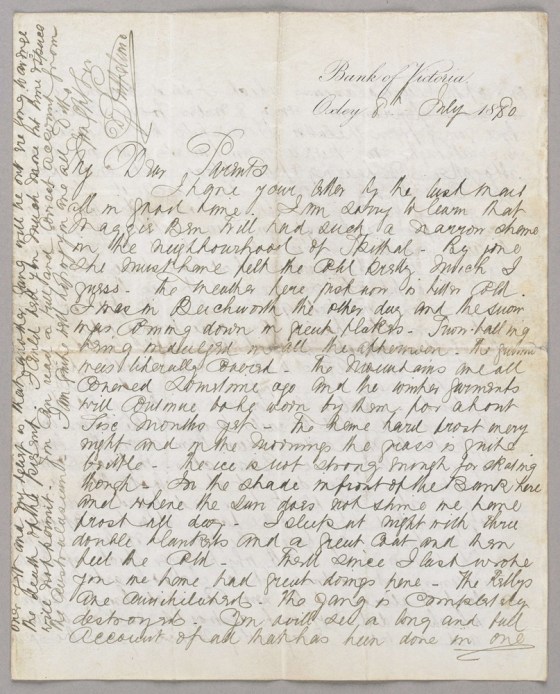 Bank of Victoria
Oxley 8th July 1880
My Dear Parents
I have your letter by the last mail
all in good time. I am sorry to learn that
Maggie Ben Will had such a narrow shave
in the neighbourhood of
She must have felt the cold pretty much I
guess - the weather here just now is bitter cold.
I was in Beechworth the other day and the snow
was coming down in great flakes - Snow-balling
being indulged in all the afternoon - the ground
was literally covered - the mountains are all
covered sometime ago and the winter garments
will continue to be worn by them for about
two months yet - We have hard frost every
night and in the mornings the grass is quite
brittle - the ice is not strong enough for skating
though - In the shade in front of the Bank here
and where the sun does not shine we have
frost all day - I sleep at night with three
double blankets and a great coat and then
feel the cold - Well since I last wrote
you we have had great doings here - The Kellys
are annihilated - The gang is completely
destroyed - You will see a long and full
account of all that has been done in one
only yet and my fear is that another gang will be out ere long
the death of the present. I could tell you much more but time & space
wont permit. You can read a full and correct account from
the Australasian
I am